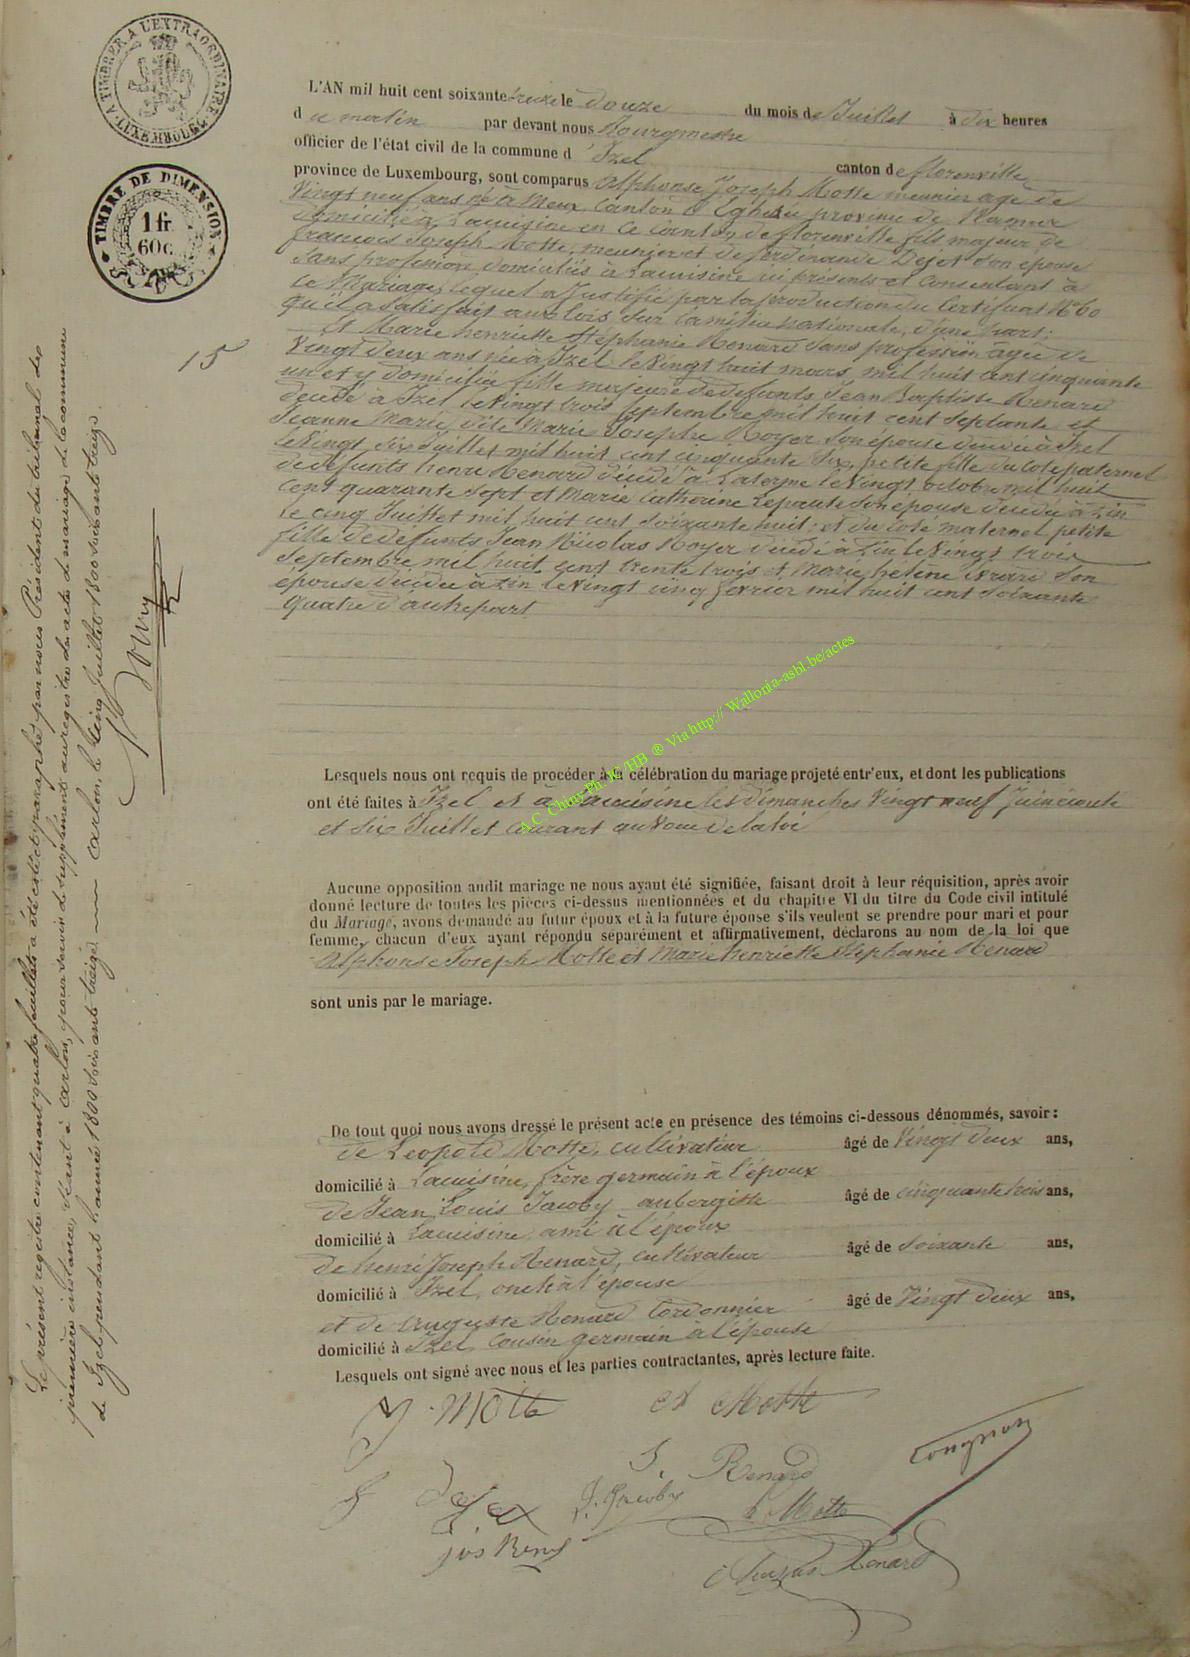 A TIMBRER A L'EXTRAORDINAIRE
LUXEMBOURG
TIMBRE DE DIMENSION
1 fr.
60 c.
15
L'AN mil huit cent soixante treize le douze du mois de Juillet à dix heures
du matin par devant nous Bourgmestre
officier de l'état civil de la commune d'Izel canton de florenville
province de Luxembourg, sont comparus Alphonse Joseph Motte meunier age de
Vingt neuf ans né à Meux Canton d'Eghezée province de Namur
domicilié à Lacuisine en ce canton de florenville fils majeur de
françois Joseph Motte, meunier et de ferdinande Dejet son epouse
sans profession domiciliés à Lacuisine ici présents et consentant à
ce Mariage, lequel a Justifié par la production du Certificat N° 60
qu'il a satisfait aux lois sur la milice nationale, d'une part;
Et Marie henriette Stéphanie Renard sans profession agée de
Vingt deux ans née à Izel le Vingt huit mars mil huit cent cinquante
un et y domiciliée fille majeure de defunts Jean Baptiste Renard
décédé à Izel le Vingt trois septembre mil huit cent septante et
Jeanne Marie dite Marie Josephe Royer son epouse décédée à Izel
le Vingt six Juillet mil huit cent cinquante six, petite fille du coté paternel
de defunts henri Renard décédé à le Vingt octobre mil huit
cent quarante sept et Marie Catherine Lepante son épouse décédée à Izel
le cinq Juillet mil huit cent soixante huit; et du coté maternel petite
fille de defunts Jean Nicolas Royer décédé à le Vingt trois
septembre mil huit cent trente trois et Marie helène son
epouse décédée à le Vingt cinq fevrier mil huit cent soixante
quatre d'autre part
A.C Chiny Ph. K / HB ® Via http:// Wallonia-asbl.be/actes
Lesquels nous ont requis de procéder à la célébration du mariage projeté entr'eux, et dont les publications
ont été faites à Izel et à Lacuisine les dimanches Vingt neuf Juin écoulé
et six Juillet courant au Nom de la loi
Aucune opposition audit mariage ne nous ayant été signifiée, faisant droit à leur réquisition, après avoir
donné lecture de toutes les pièces ci-dessus mentionnées et du chapitre VI du titre du Code civil intitulé
du Mariage, avons demandé au futur époux et à la future épouse s'ils veulent se prendre pour mari et pour
femme, chacun d'eux ayant répondu séparément et affirmativement, déclarons au nom de la loi que
Alphonse Joseph Motte et Marie henriette Stephanie Renard
sont unis par le mariage.
De tout quoi nous avons dressé le présent acte en présence des témoins ci-dessous dénommés, savoir :
de Leopold Motte, cultivateur âgé de Vingt deux ans,
domicilié à Lacuisine, frère germain à l'époux
de Jean Louis Jacoby aubergiste âgé de cinquante trois ans,
domicilié à Lacuisine, ami à l'époux
de henri Joseph Renard, cultivateur âgé de Soixante ans,
domicilié à Izel, oncle à l'épouse
et de Auguste Renard Cordonnier âgé de Vingt deux ans,
domicilié à Izel, cousin germain à l'épouse
Lesquels ont signé avec nous et les parties contractantes, après lecture faite.
J. Motte A Motte
S. Renard
F Dejet J. Jacoby L Motte
Renard
Le présent registre contenant quatre feuillets a été coté et paraphé par nous Président du tribunal de
première instance, séant à Arlon, pour servir de supplément au registre des actes de mariage de la commune
de Izel pendant l'année 1800 soixante treize. Arlon, le cinq Juillet 1800 soixante treize.